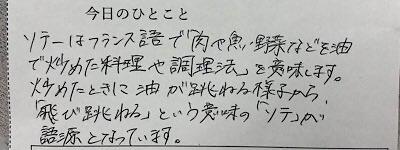 今日のひとこと
ソテーはフランス語で「肉や魚、野菜などを油
で炒めた料理や調理法」を意味します。
炒めたときに油が跳ねる様子から
「飛び跳ねる」という意味の「ソテ」が
語源となっています。